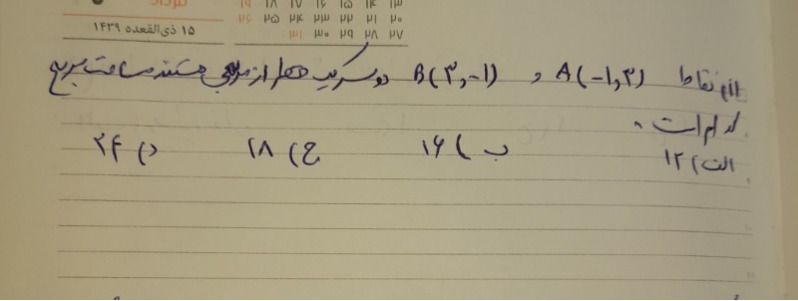 مرداد
۱۳ ۱۴ ۱۵ ۱۶ ۱۷ ۱۸ ۱۹
۲۰ ۲۱ ۲۲ ۲۳ ۲۴ ۲۵ ۲۶
۲۷ ۲۸ ۲۹ ۳۰ ۳۱
۱۵ ذی‌القعده ۱۴۳۹
اگر نقاط A(-۱,۳) و B(۳,-۱) دو سر یک قطر از مربعی هستند مساحت مربع
کدام است
الف) ۱۲ ب) ۱۶ ج) ۱۸ د) ۲۴